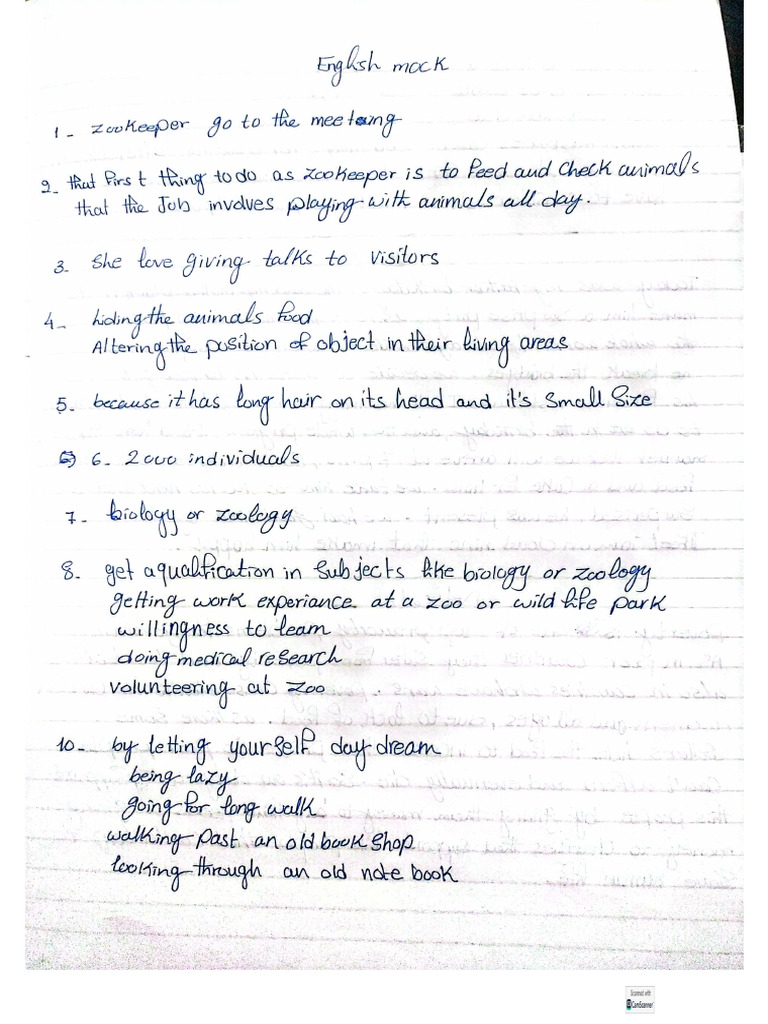 English mock
1 - zookeeper go to the meeteng
2 - that first thing to do as zookeeper is to feed and check animals
that the Job involves playing with animals all day.
3 - She love giving talks to visitors
4 - hiding the animals food
Altering the position of object in their living areas
5 - because it has long hair on its head and it's small size
6 - 2000 individuals
7 - biology or zoology
8 - get a qualification in subjects like biology or zoology
getting work experiance at a zoo or wild life park
willingness to learn
doing medical research
volunteering at zoo
10 - by letting yourself day dream
being lazy
going for long walk
walking past an old book shop
looking through an old note book
Scanned with
CamScanner